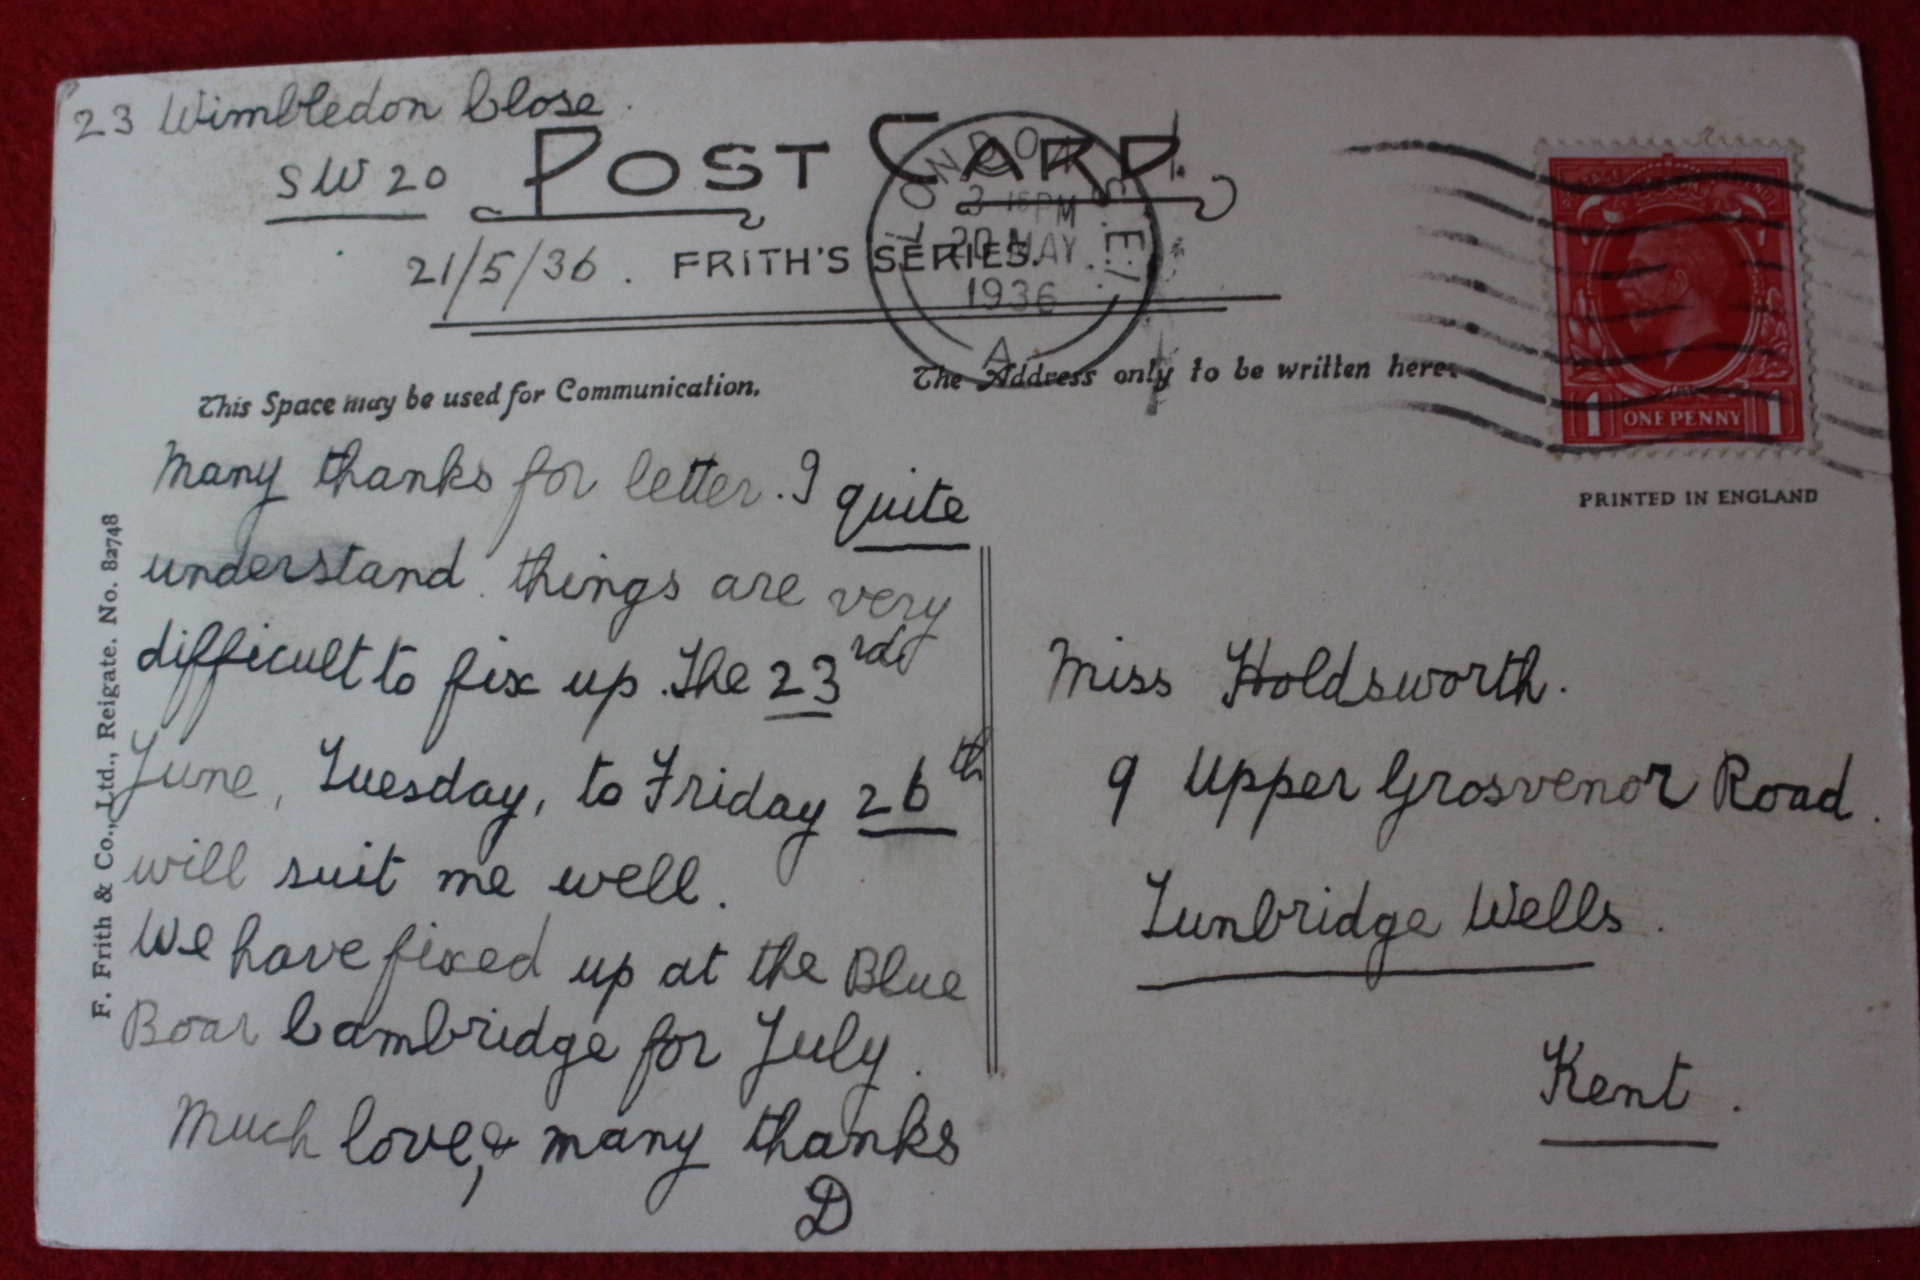 23 Wimbledon Close.
SW 20
POST CARD.
21/5/36. FRITH'S SERIES.
LONDON S.E.1.
3 15 PM
20 MAY
1936
A
This Space may be used for Communication.
The Address only to be written here.
1 ONE PENNY 1
PRINTED IN ENGLAND
F. Frith & Co., Ltd., Reigate. No. 82748
Many thanks for letter. I quite
understand things are very
difficult to fix up. The 23rd
June, Tuesday, to Friday 26th
will suit me well.
We have fixed up at the Blue
Boar Cambridge for July.
Much love, & many thanks
D
Miss Holdsworth.
9 Upper Grosvenor Road.
Tunbridge Wells.
Kent.